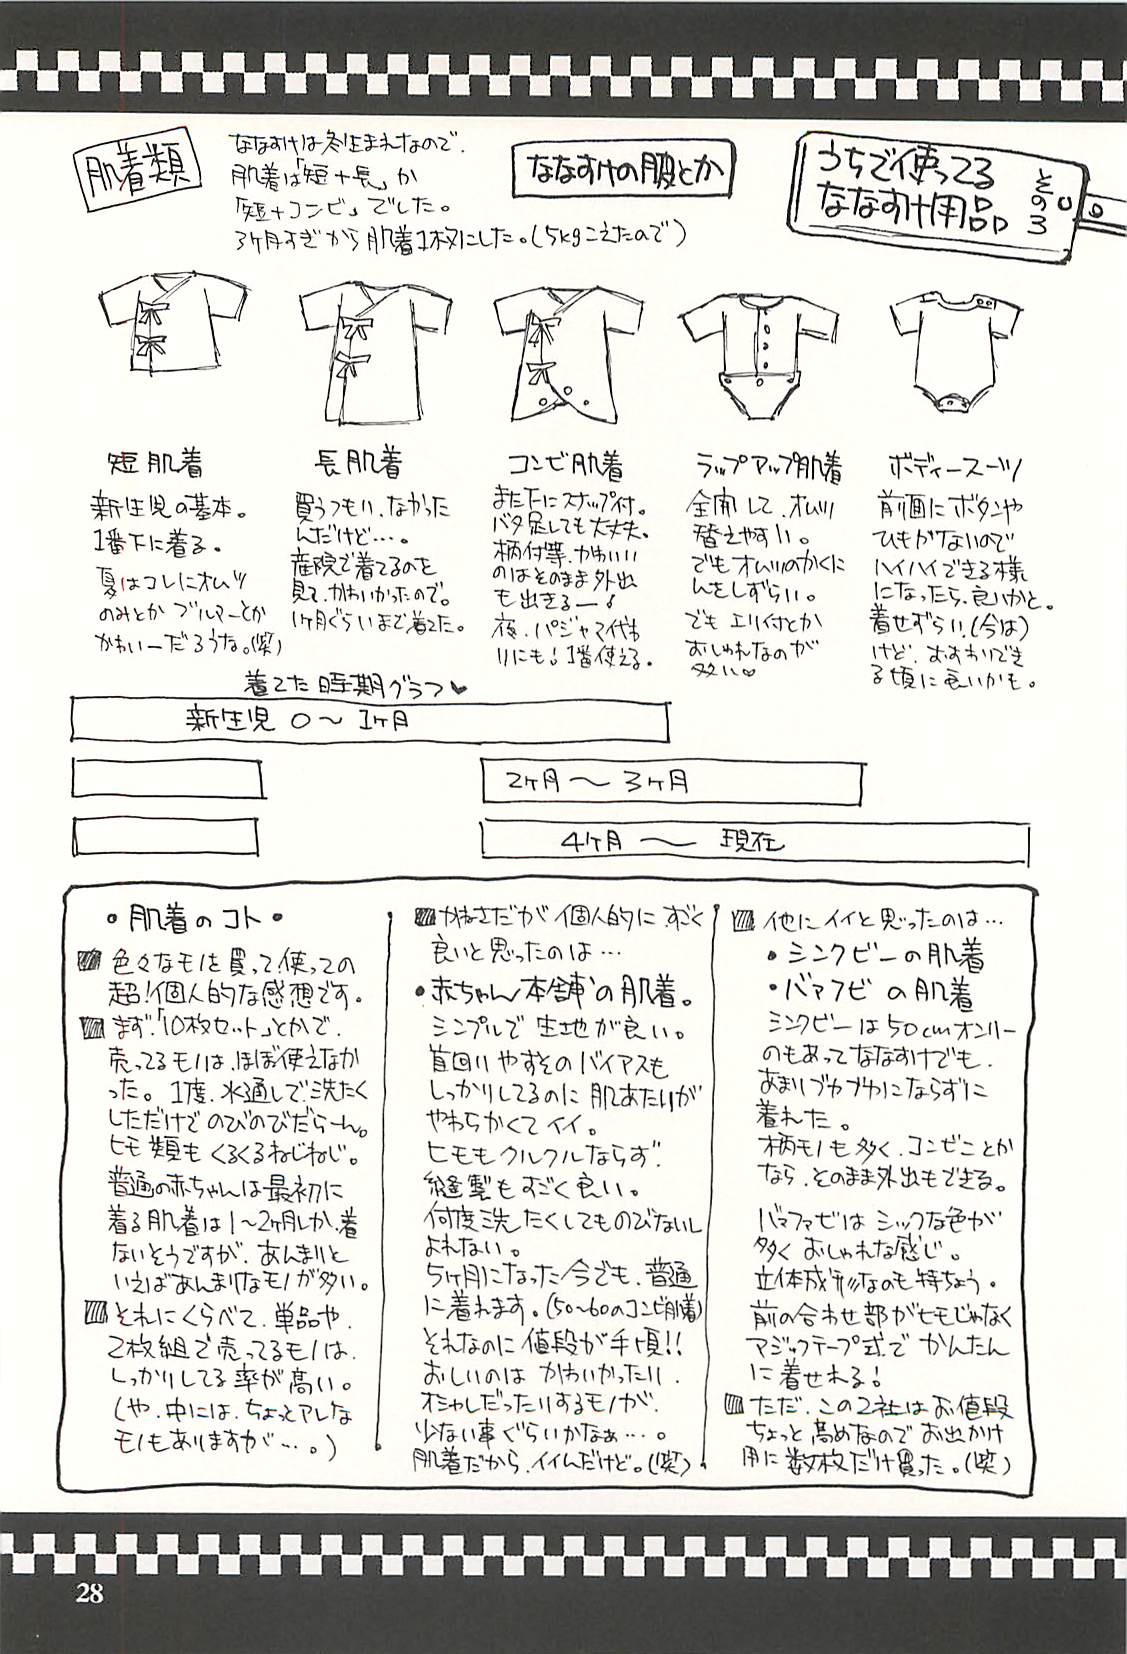 うちで使ってる
ななすけ用品
その3
ななすけの服とか
肌着類
ななすけは冬生まれなので、
肌着は「短+長」か
「短+コンビ」でした。
3ヶ月すぎから肌着1枚にした。(5kgこえたので)
短肌着
新生児の基本。
1番下に着る。
夏はコレにオムツ
のみとかブルマーとか
かわいーだろうな。(笑)
長肌着
買うつもり、なかった
んだけど…。
産院で着てるのを
見て、かわいかったので。
1ヶ月ぐらいまで着てた。
コンビ肌着
また下にスナップ付。
バタ足しても大丈夫。
柄付等、かわいい
のはそのまま外出
も出きるー!
夜、パジャマ代わ
りにも!1番使える。
ラップアップ肌着
全開して、オムツ
替えやすい。
でもオムツのかくに
んをしずらい。
でも エリ付とか
おしゃれなのが
多い♡
ボディースーツ
前面にボタンや
ひもがないので
ハイハイできる様
になったら、良いかと。
着せずらい、(今は)
けど、おすわりでき
る頃に良いかも。
着てた時期グラフ♥
新生児 0〜1ヶ月
2ヶ月〜3ヶ月
4ヶ月〜 現在
・肌着のコト・
色々なモノを買って、使っての
超!個人的な感想です。
まず、「10枚セット」とかで、
売ってるモノは、ほぼ使えなか
った。1度、水通しで洗たく
しただけでのびのびだらーん。
ヒモ類もくるくるねじねじ。
普通の赤ちゃんは最初に
着る肌着は1〜2ヶ月しか、着
ないそうですが、あんまりと
いえばあんまりなモノが多い。
それにくらべて、単品や、
2枚組で売ってるモノは、
しっかりしてる率が高い。
(や、中には、ちょっとアレな
モノもありますが…。)
かねさだが個人的に、すごく
良いと思ったのは…
・赤ちゃん本舗の肌着。
シンプルで生地が良い。
首回りやすそのバイアスも
しっかりしてるのに肌あたりが
やわらかくてイイ。
ヒモもクルクルならず、
縫製もすごく良い。
何度洗たくしてものびないし
よれない。
5ヶ月になった今でも、普通
に着れます。(50〜60のコンビ肌着)
それなのに値段が手頃!!
おしいのは かわいかったり、
オシャレだったりするモノが、
少ない事ぐらいかなぁ…。
肌着だから、イイんだけど。(笑)
他にイイと思ったのは…
・シンクビーの肌着
・バァフビの肌着
シンクビーは50cmオンリー
のもあってななすけでも、
あまりブカブカにならずに
着れた。
柄モノも多く、コンビことか
なら、そのまま外出もできる。
バァファビはシックな色が
多く おしゃれな感じ。
立体成形なのも特ちょう。
前の合わせ部がヒモじゃなく
マジックテープ式で かんたん
に着せれる!
ただ、この2社はお値段
ちょっと高めなので お出かけ
用に数枚だけ買った。(笑)
28